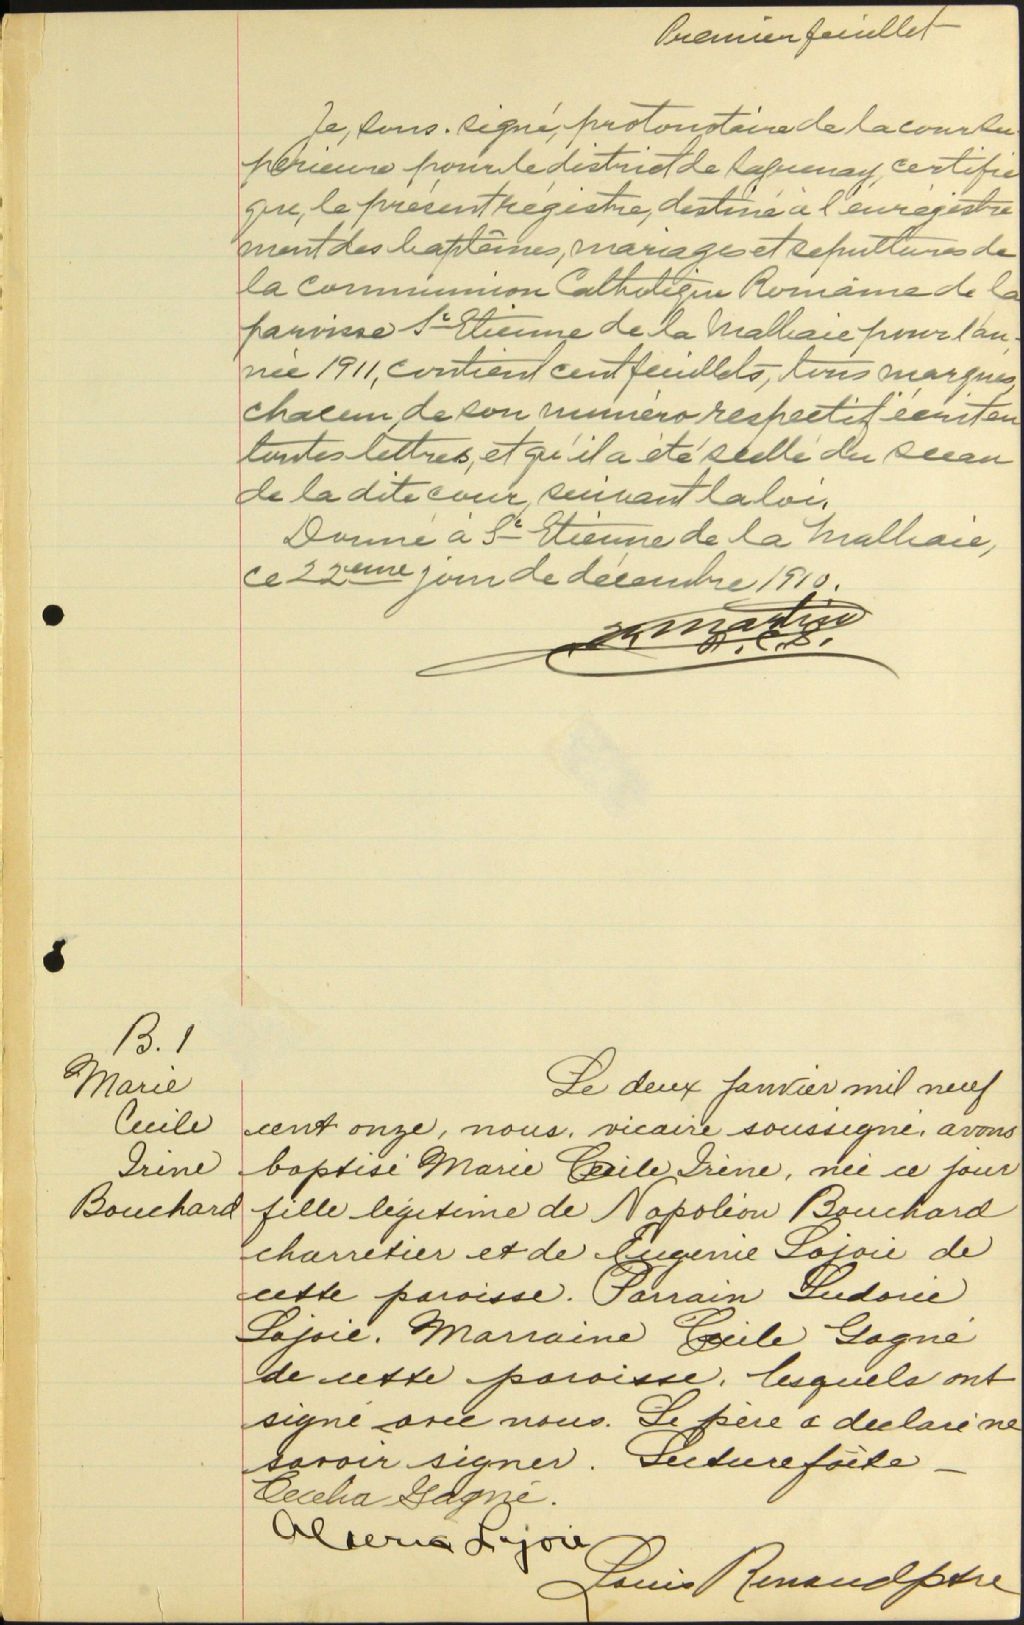 Premier feuillet
Je, sous-signé, protonotaire de la cour su-
périeure pour le district de Saguenay, certifie
que, le présent régistre, destiné à l'enrégistre
ment des baptêmes, mariages et sepultures de
la Communion Catholique Romaine de la
paroisse St Etienne de la Malbaie pour l'an-
née 1911, contient cent feuillets, tous marqués,
chacun, de son numéro respectif écrit en
toutes lettres, et qu'il a été scellé du sceau
de la dite cour, suivant la loi.
Donné à St Etienne de la Malbaie,
ce 22eme jour de décembre 1910.
Martin
P. C. S.
B. 1
Marie
Cecile
Irène
Bouchard
Le deux janvier mil neuf
cent onze, nous, vicaire soussigné, avons
baptisé Marie Cecile Irène, née ce jour
fille légitime de Napoléon Bouchard
charretier et de Eugenie Lajoie de
cette paroisse. Parrain Ludovic
Lajoie. Marraine Cecile Gagné
de cette paroisse, lesquels ont
signé avec nous. Le père a declaré ne
savoir signer. Lecture faite –
Cecelia Gagné.
Lajoie
Louis Renaud ptre